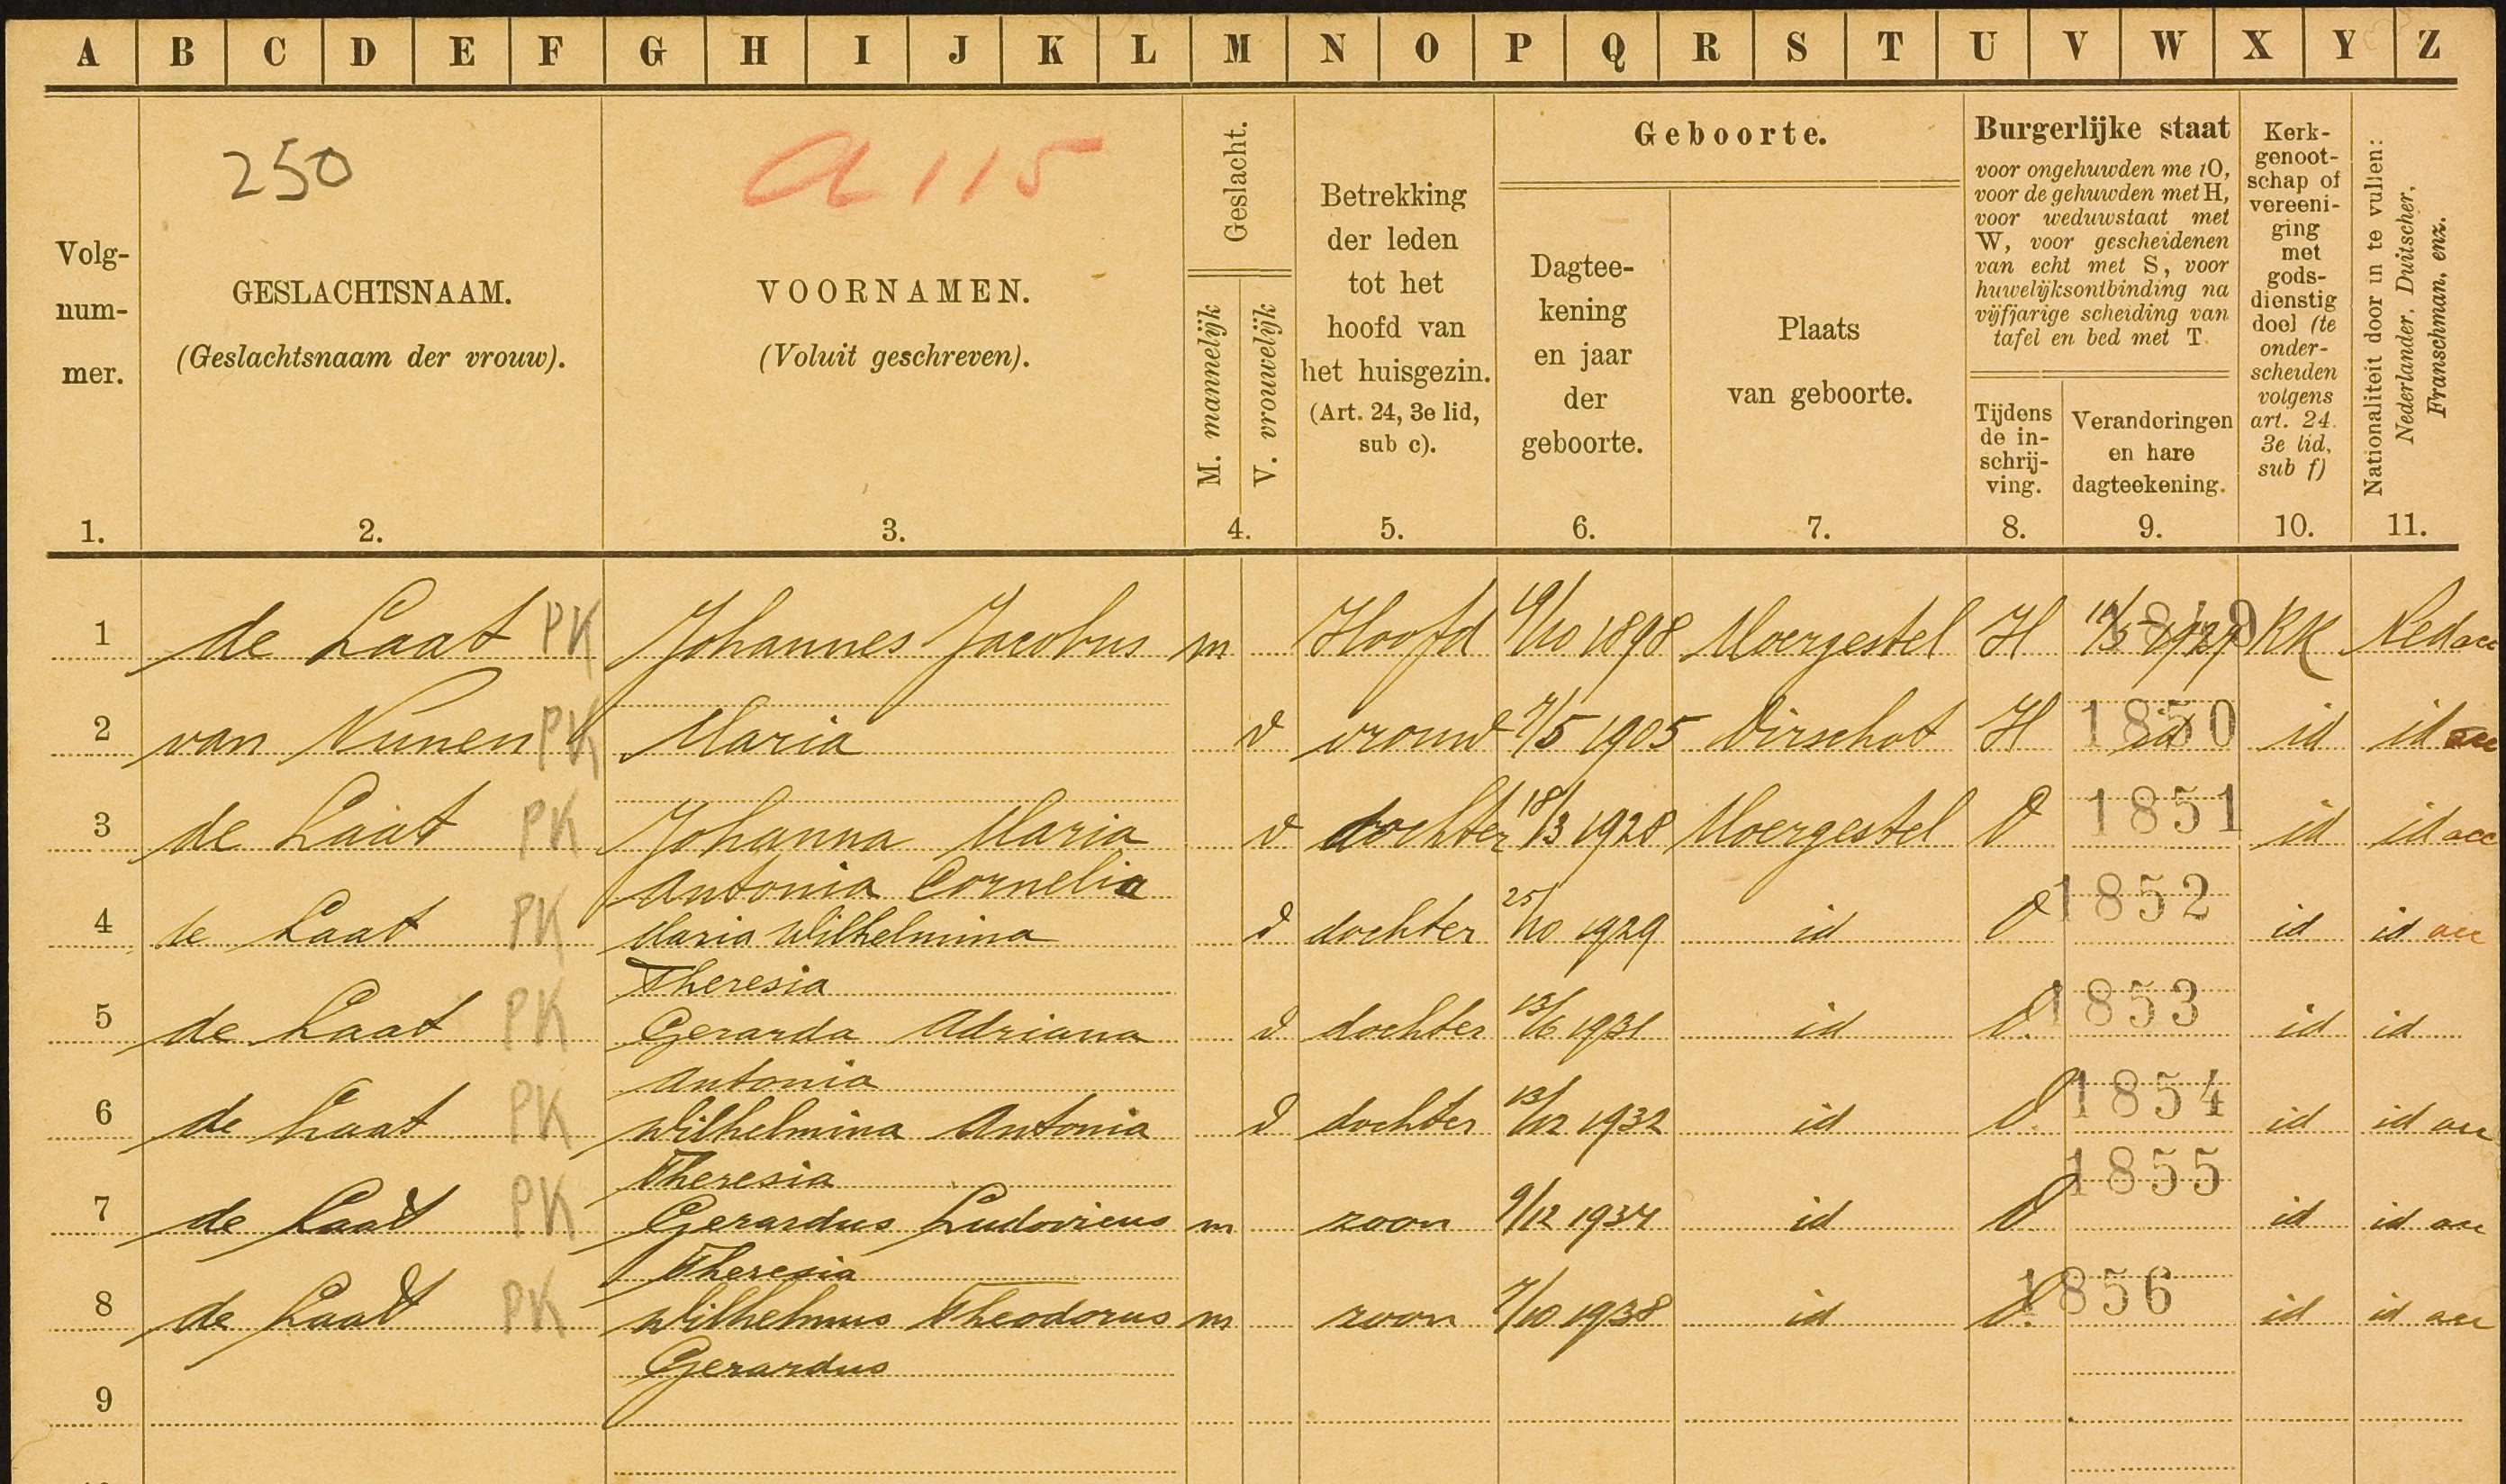 A B C D E F G H I J K L M N O P Q R S T U V W X Y Z
250
a 115
Volg-
num-
mer.
1.
GESLACHTSNAAM.
(Geslachtsnaam der vrouw).
2.
VOORNAMEN.
(Voluit geschreven).
3.
Geslacht.
M. mannelijk
V. vrouwelijk
4.
Betrekking
der leden
tot het
hoofd van
het huisgezin.
(Art. 24, 3e lid,
sub c).
5.
Geboorte.
Dagtee-
kening
en jaar
der
geboorte.
6.
Plaats
van geboorte.
7.
Burgerlijke staat
voor ongehuwden me tO,
voor de gehuwden met H,
voor weduwstaat met
W, voor gescheidenen
van echt met S, voor
huwelijksontbinding na
vijfjarige scheiding van
tafel en bed met T.
Tijdens
de in-
schrij-
ving.
8.
Veranderingen
en hare
dagteekening.
9.
Kerk-
genoot-
schap of
vereeni-
ging
met
gods-
dienstig
doel (te
onder-
scheiden
volgens
art. 24.
3e lid,
sub f)
10.
Nationaliteit door in te vullen:
Nederlander, Duitscher,
Franschman, enz.
11.
1 de Laat PK Johannes Jacobus m Hoofd 19/10 1898 Moergestel H 1849 1927 RK Ned acc
2 van Nunen PK Maria v vrouw 7/5 1905 Oirschot H 1850 id id id acc
3 de Laat PK Johanna Maria v dochter 18/3 1928 Moergestel O 1851 id id acc
Antonia Cornelia
4 de Laat PK Maria Wilhelmina v dochter 25/10 1929 id O 1852 id id acc
Theresia
5 de Laat PK Gerarda Adriana v dochter 13/6 1931 id O. 1853 id id
Antonia
6 de Laat PK Wilhelmina Antonia v dochter 13/12 1932 id O. 1854 id id acc
Theresia
7 de Laat PK Gerardus Ludovicus m zoon 9/12 1934 id O 1855 id id acc
Theresia
8 de Laat PK Wilhelmus Theodorus m zoon 7/10 1938 id O. 1856 id id acc
Gerardus
9